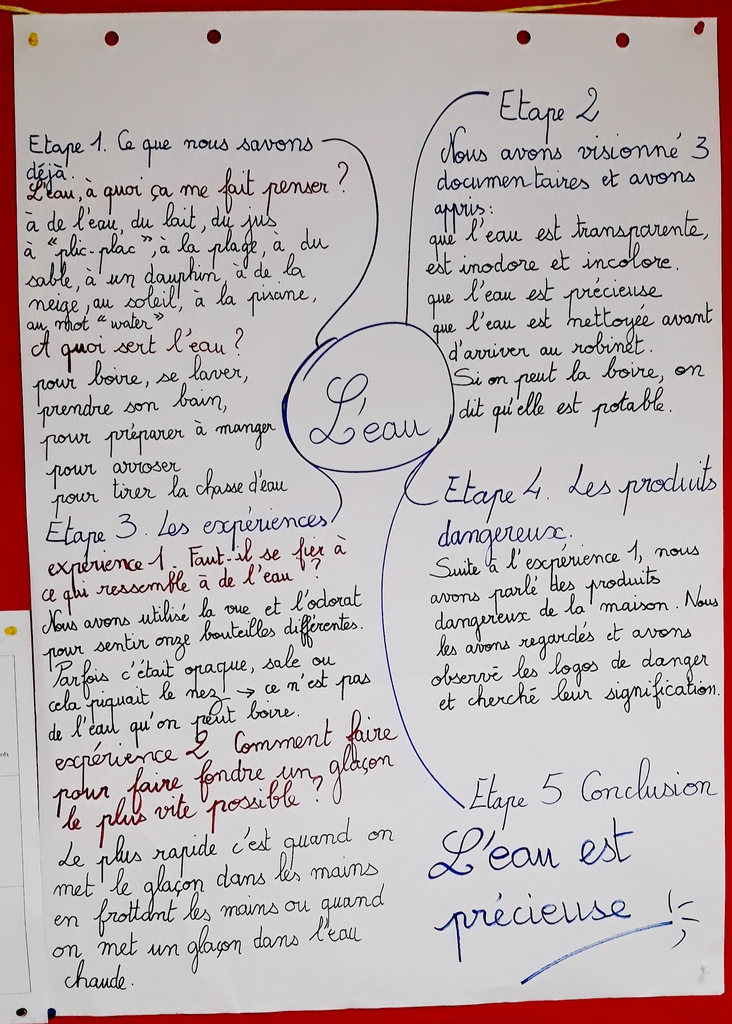 Etape 1. Ce que nous savons
déjà.
L'eau, à quoi ça me fait penser ?
à de l'eau, du lait, du jus
à "plic-plac", à la plage, à du
sable, à un dauphin, à de la
neige, au soleil, à la piscine,
au mot "water"
A quoi sert l'eau ?
pour boire, se laver,
prendre son bain,
pour préparer à manger
pour arroser
pour tirer la chasse d'eau
Etape 2
Nous avons visionné 3
documentaires et avons
appris:
que l'eau est transparente,
est inodore et incolore.
que l'eau est précieuse
que l'eau est nettoyée avant
d'arriver au robinet.
Si on peut la boire, on
dit qu'elle est potable.
L'eau
Etape 3. Les expériences
expérience 1. Faut-il se fier à
ce qui ressemble à de l'eau ?
Nous avons utilisé la vue et l'odorat
pour sentir onze bouteilles différentes.
Parfois c'était opaque, sale ou
cela piquait le nez → ce n'est pas
de l'eau qu'on peut boire.
expérience 2 Comment faire
pour faire fondre un glaçon
le plus vite possible ?
Le plus rapide c'est quand on
met le glaçon dans les mains
en frottant les mains ou quand
on met un glaçon dans l'eau
chaude.
Etape 4. Les produits
dangereux.
Suite à l'expérience 1, nous
avons parlé des produits
dangereux de la maison. Nous
les avons regardés et avons
observé les logos de danger
et cherché leur signification.
Etape 5 Conclusion
L'eau est
précieuse